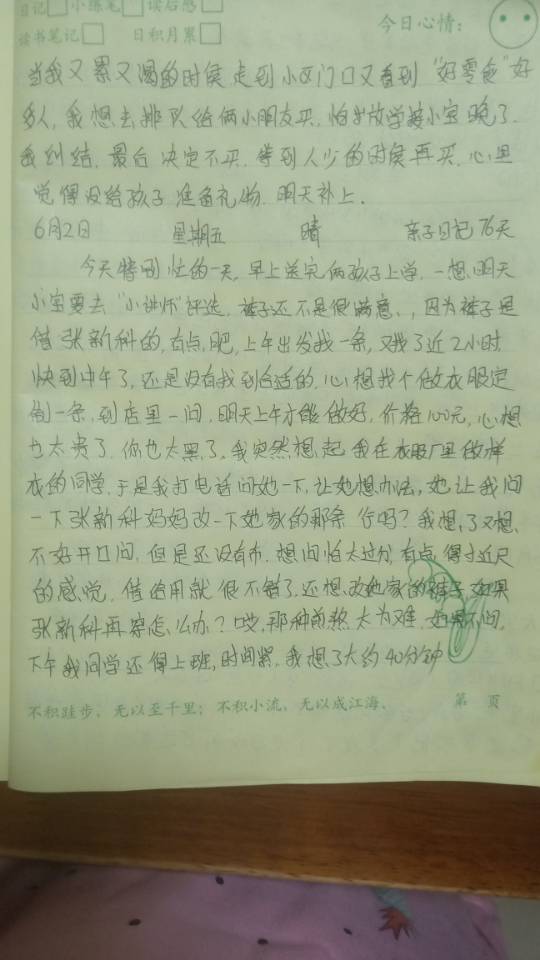 日记 小练笔 读后感
今日心情：
读书笔记 日积月累
当我又累又渴的时候走到小区门口又看到“好零食”好
多人，我想去排队给俩小朋友买，怕放学接小宝晚了.
我纠结，最后决定不买，等到人少的时候再买，心里
觉得没给孩子准备礼物，明天补上.
6月2日 星期五 晴 亲子日记76天
今天特别忙的一天，早上送完俩孩子上学，一想明天
小宝要去“小讲师”评选，裤子还不是很满意，因为裤子是
借张新科的，有点肥，上午出发找一条，又找了近2小时，
快到中午了，还是没有找到合适的，心想找个做衣服定
做一条，到店里一问，明天上午才能做好，价格100元，心想
也太贵了，你也太黑了，我突然想起我在衣服厂里做样
衣的同学，于是我打电话问她一下，让她想办法，她让我问
一下张新科妈妈改一下她家的那条行吗？我想了又想，
不好开口问，但是还没有布，想问怕太过分，有点得寸进尺
的感觉，借给用就很不错了，还想改她家的裤子，如果
张新科再穿怎么办？哎，那种煎熬太为难，如果不问，
下午我同学还得上班，时间紧，我想了大约40分钟
不积跬步，无以至千里；不积小流，无以成江海。 第 页